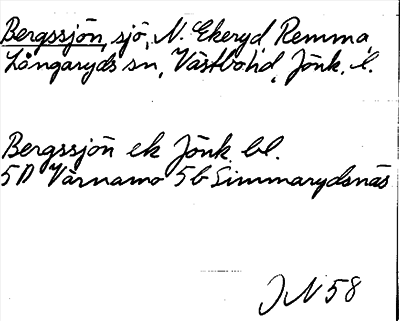 Bergssjön, sjö, N. Ekeryd, Remma,
Långaryds sn, Västbo hd, Jönk. l.
Bergssjön ek Jönk. bl.
5D Värnamo 5b Simmarydsnäs
JN 58